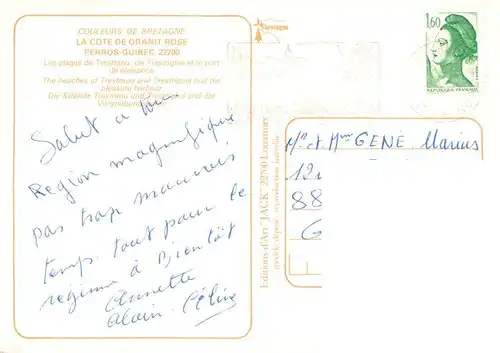 COULEURS DE BRETAGNE
LA COTE DE GRANIT ROSE
PERROS-GUIREC 22700
Les plages de Trestraou, de Trestrignel et le port
de plaisance.
The beaches at Trestraou and Trestrignel and the
pleasure harbour
Die Strände Trestraou und Trestrignel und der
Salut a
Région magnifique
pas trop mauvais
temps tout pour le
régime à Bientôt
Annette
Alain Céline
Editions d'Art "JACK" 22700 Louannec
modèle déposé reproduction interdite
Bretagne
1,60
REPUBLIQUE FRANÇAISE
Mr et Mme GENÉ Marius
121
88
G
F